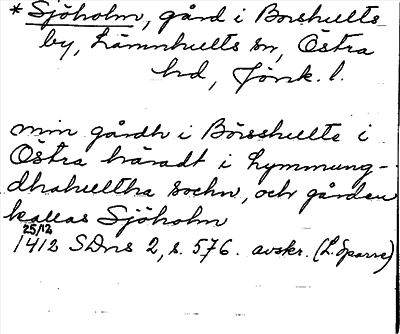 * Sjöholm, gård i Börshults
by, Lämnhults sn, Östra
hd, Jönk. l.
min gårdh i Börsshulte i
Östra häradt i Lymmung-
dhahulltha sochn, och gården
kallas Sjöholm
25/12
1412 SDns 2, s. 576. avskr. (L. Sparre)